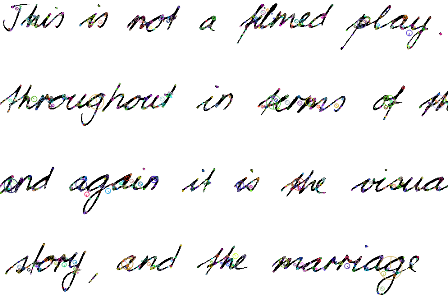 This is not a filmed play.
throughout in terms of th
and again it is the visua
story, and the marriage